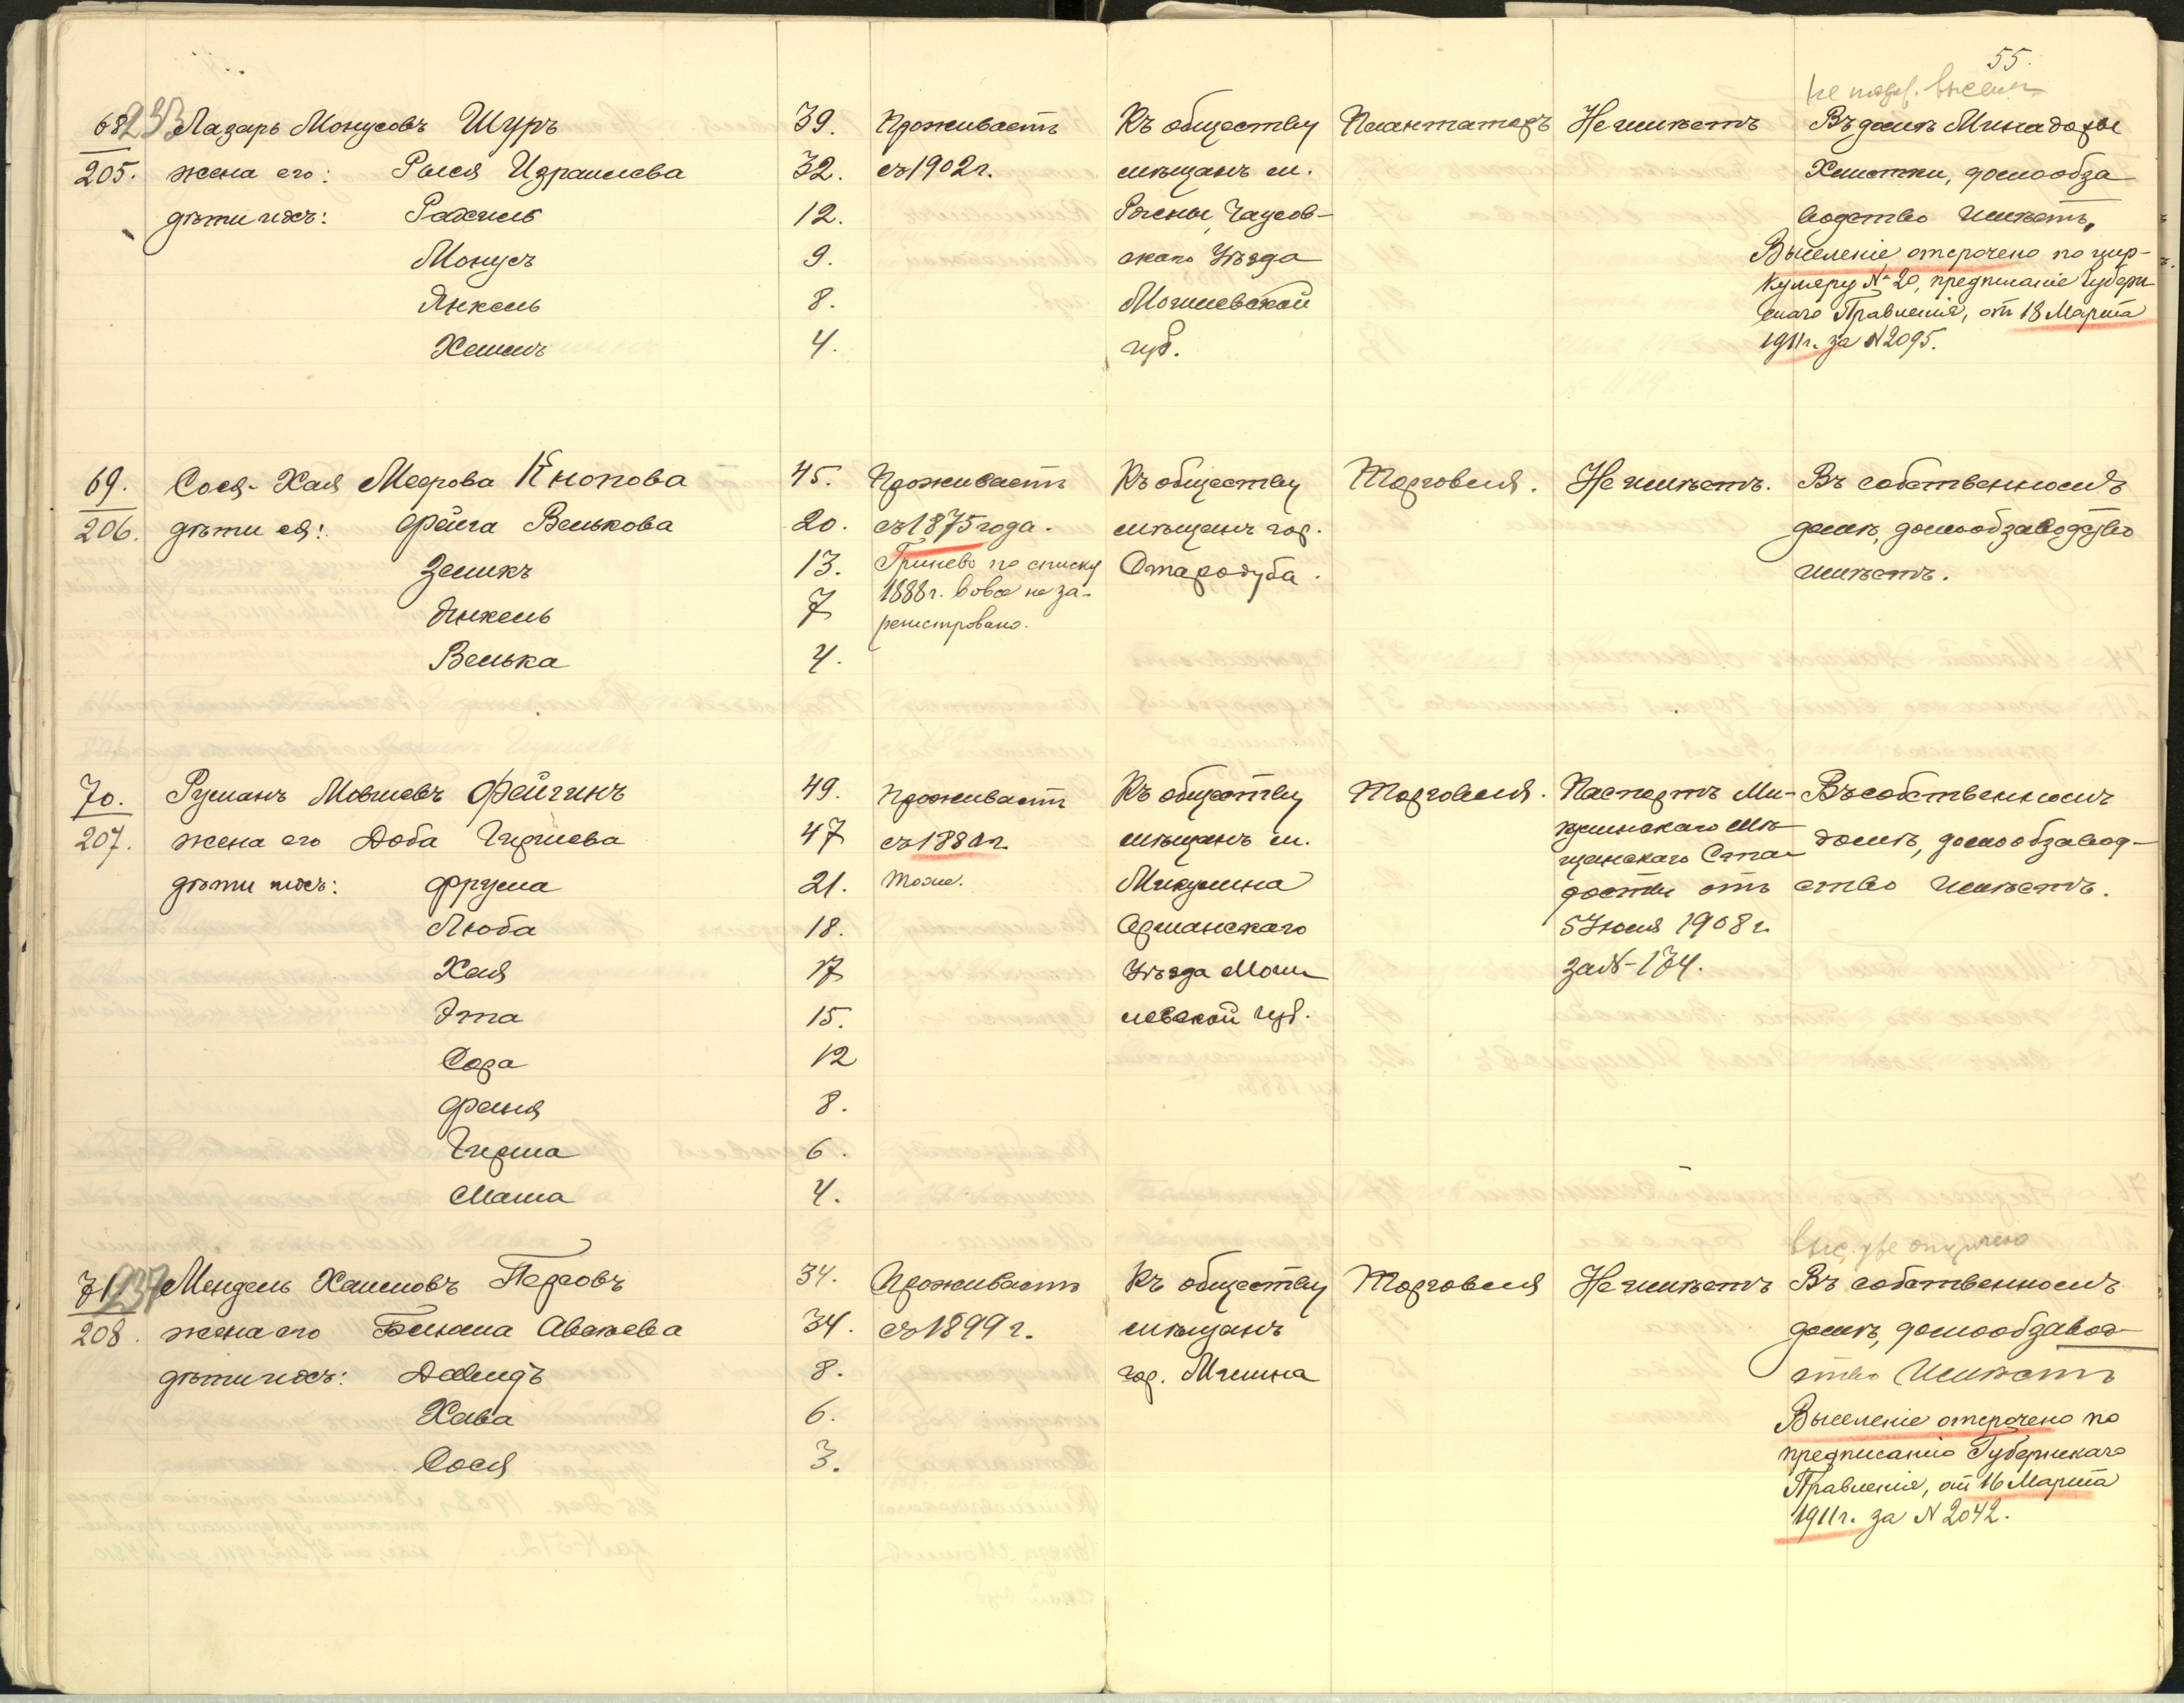 55.
не подл. выселен.
68 233 Лазарь Монусовъ Шуръ 39. Проживаетъ Къ обществу Плантаторъ Не имѣетъ Въ домѣ Минадоры
205. жена его: Рыся Израилева 32. съ 1902 г. мѣщанъ м. домообза
дѣти ихъ: Рахиль 12. Рясны, Чаусов- водство имѣетъ,
Монусъ 9. скаго Уѣзда Выселеніе отсрочено по цир-
куляру № 20, предписаніе Губерн
Янкель 8. Могилевской скаго Правленія, отъ 18 Марта
Хаимъ 4. губ. 1911 г. за № 2095.
69. Сося-Хая Меерова Кнопова 45. Проживаетъ Къ обществу Торговля. Не имѣетъ. Въ собственномъ
206. дѣти ея: Фейга Велькова 20. съ 1875 года. мѣщанъ гор. домѣ, домообзаводство
Зеликъ 13. Гринево по списку Стародуба. имѣетъ.
Янкель 7 1888 г. вовсе не за-
регистровано.
Велька 4.
70. Руманъ Мовшевъ Фейгинъ 49. Проживаетъ Къ обществу Торговля. Паспортъ Ми- Въ собственномъ
207. жена его Доба Гиршева 47 съ 1880 г. мѣщанъ м. кулинскаго Мѣ- домѣ, домообзавод-
щанскаго Ста-
дѣти ихъ: Фрума 21. тоже. Микулина росты отъ ство имѣетъ.
Люба 18. Оршанскаго 5 Іюля 1908 г.
Хая 17 Уѣзда Моги- за № 174.
Эта 15. левской губ.
Сора 12
Фаня 8.
Гирша 6.
Маша 4.
отсрочено
71 237 Мендель Хаимовъ Персовъ 34. Проживаетъ Къ обществу Торговля Не имѣетъ Въ собственномъ
208. жена его 34. съ 1899 г. мѣщанъ домѣ, домообзавод-
дѣти ихъ: Давидъ 8. гор. Мглина ство имѣетъ
Хава 6. Выселеніе отсрочено по
Сося 3. предписанію Губернскаго
Правленія, отъ 16 Марта
1911 г. за № 2042.